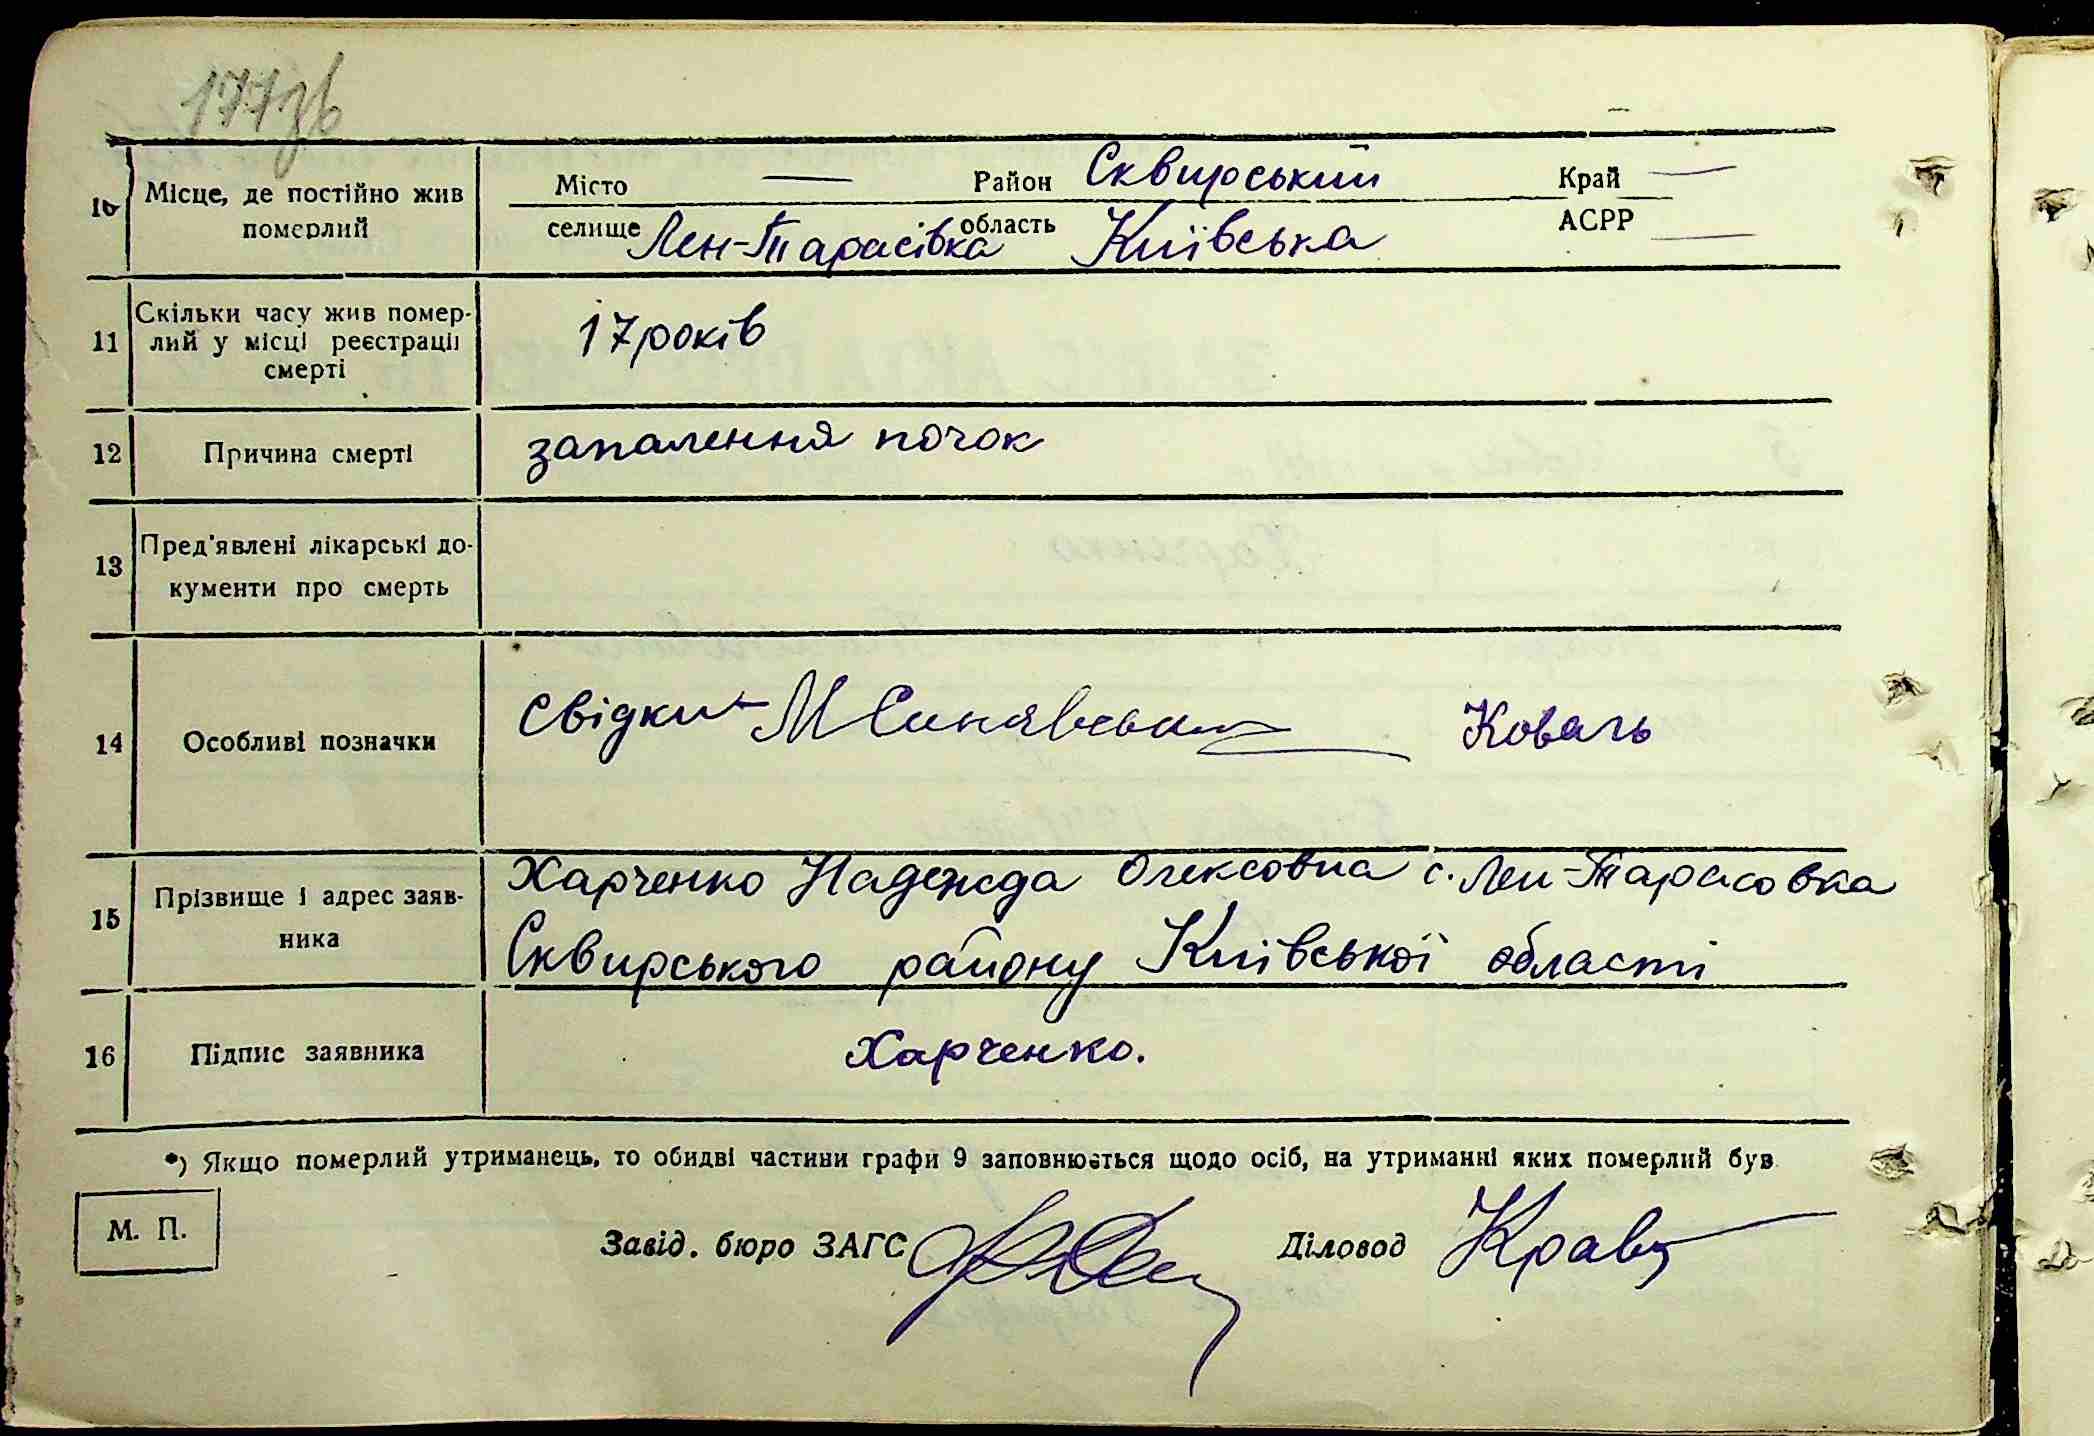 177зв
10 Місце, де постійно жив померлий
Місто — Район Сквирський Край —
селище Лен-Тарасівка область Київська АСРР —
11 Скільки часу жив помер-
лий у місці реєстрації
смерті
17 років
12 Причина смерті
запалення почок
13 Пред'явлені лікарські до-
кументи про смерть
14 Особливі позначки
свідки М Синявський Коваль
15 Прізвище і адрес заяв-
ника
Харченко Надежда Олексовна с. Лен-Тарасовка
Сквирського району Київської області
16 Підпис заявника
Харченко.
*) Якщо померлий утриманець, то обидві частини графи 9 заповнюється щодо осіб, на утриманні яких померлий був
М. П.
Завід. бюро ЗАГС Діловод Кравц